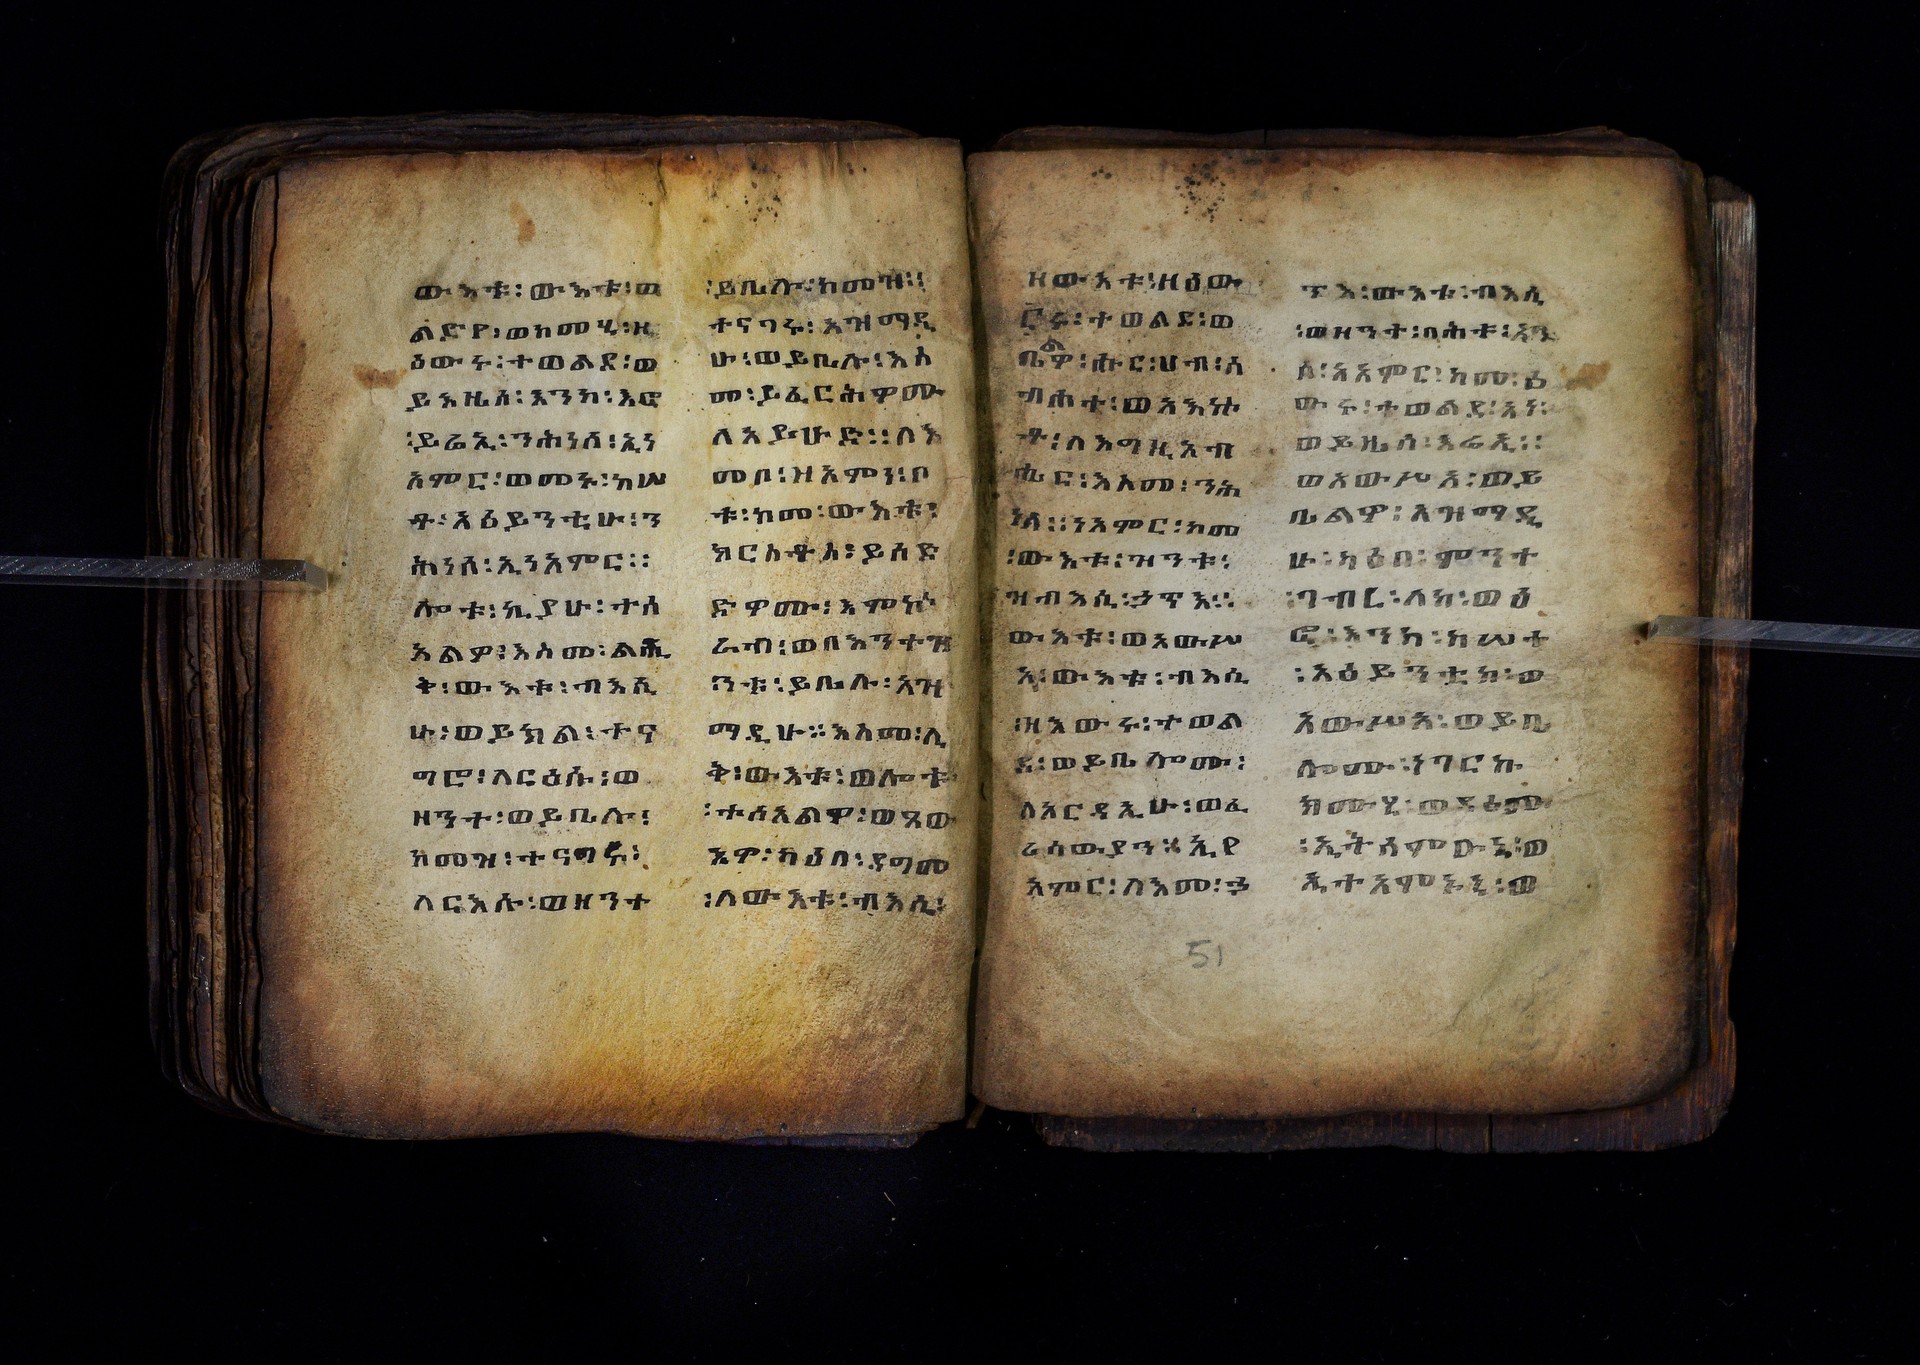 ውእቱ፡ውእቱ፡ወ
ልድየ፡ወከመሂ፡ዘ
ዕውሩ፡ተወልደ፡ወ
ይእዜሰ፡እንከ፡እፎ
፡ይሬኢ፡ንሕነሰ፡ኢነ
አምር፡ወመኑ፡ከሠ
ቶ፡አዕይንቲሁ፡ን
ሕነሰ፡ኢነአምር፡፡
ሎቱ፡ኪያሁ፡ተሰ
አልዎ፡እስመ፡ልሒ
ቅ፡ውእቱ፡ብእሲ
ሁ፡ወይክል፡ተና
ግሮ፡ለርዕሱ፡ወ
ዘንተ፡ወይቤሉ፡
ከመዝ፡ተናግሩ፡
ለርእሱ፡ወዘንተ
፡ይቤሉ፡ከመዝ፡፡
ተናገሩ፡አዝማዲ
ሁ፡ወይቤሉ፡እስ
መ፡ይፈርሕዎሙ
ለአይሁድ፡፡ለእ
መቦ፡ዝአምነ፡ቦ
ቱ፡ከመ፡ውእቱ፡
ክርስቶስ፡ይሰድ
ድዎሙ፡እምኵ
ራብ፡ወበእንተዝ
ንቱ፡ይቤሉ፡አዝ
ማዲሁ፡፡እስመ፡ሊ
ቅ፡ውእቱ፡ወሎቱ
፡ተሰአልዎ፡ወጸው
እዎ፡ካዕበ፡ዳግመ
፡ለውእቱ፡ብእሲ፡
ዘውእቱ፡ዘዕው
ሩ፡ተወልደ፡ወ
ቤልዎ፡ሑር፡ሀብ፡ስ
ብሐተ፡ወአእኵ
ቶ፡ለእግዚአብ
ሔር፡እስመ፡ንሕ
ነሰ፡፡ነአምር፡ከመ
፡ውእቱ፡ዝንቱ፡
ዝብእሲ፡ኃጥእ፡፡
ውእቱ፡ወአውሠ
አ፡ውእቱ፡ብእሲ
፡ዘእውሩ፡ተወል
ደ፡ወይቤሎሙ፡
ለአርዳኢሁ፡ወፈ
ሪሳውያን፡፡ኢየ
አምር፡ለእመ፡ኃ
ጥእ፡ውእቱ፡ብእሲ
፡ወዘንተ፡ባሕቱ፡ዳእ
ሰ፡አአምር፡ከመ፡ዕ
ውሩ፡ተወልደ፡አነ፡
ወይዜሰ፡እሬኢ፡፡
ወአውሥአ፡ወይ
ቤልዎ፡አዝማዲ
ሁ፡ካዕበ፡ምንተ
፡ገብረ፡ለከ፡ወዕ
ፎ፡እንከ፡ከሠተ
፡አዕይንቲከ፡ወ
አውሥአ፡ወይቤ
ሎሙ፡ነገርኩ
ክሙሂ፡
፡ኢትሰምዑኒ፡ወ
ኢተአምኑኒ፡ወ
51